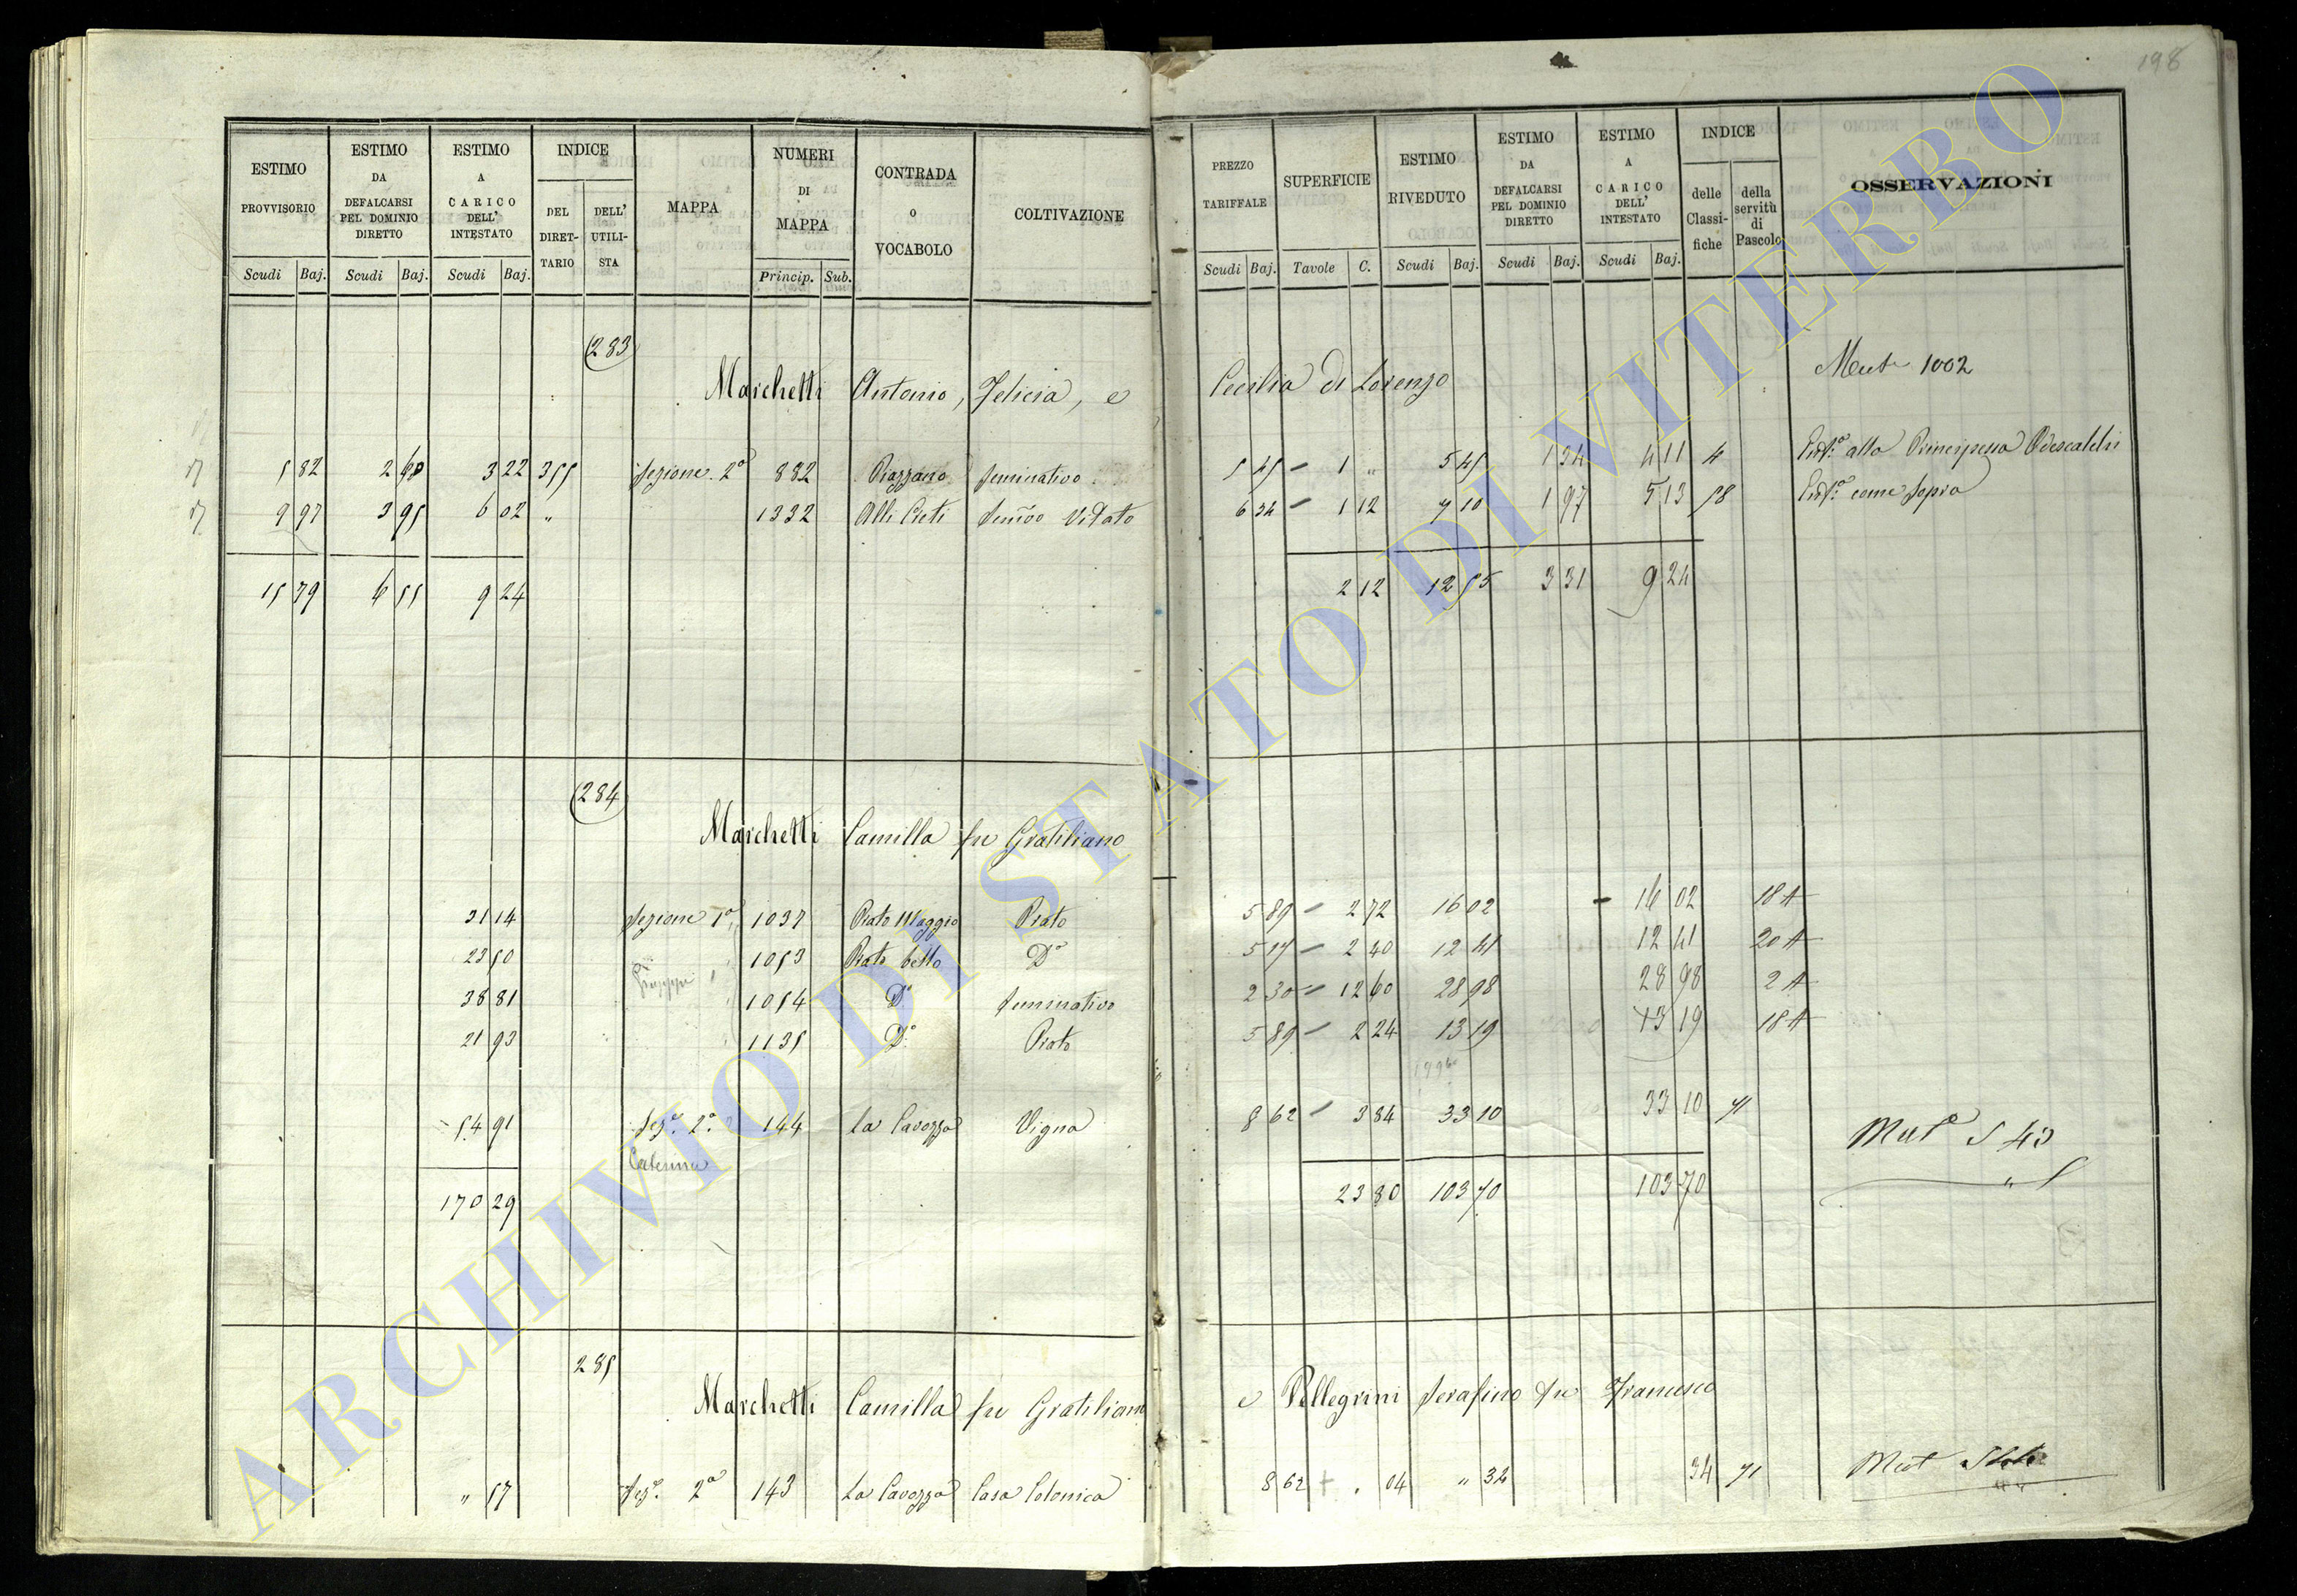 198
ESTIMO PROVVISORIO
ESTIMO DA DEFALCARSI PEL DOMINIO DIRETTO
ESTIMO A CARICO DELL' INTESTATO
INDICE
DEL DIRETTARIO
DELL' UTILISTA
MAPPA
NUMERI DI MAPPA
CONTRADA o VOCABOLO
COLTIVAZIONE
PREZZO TARIFFALE
SUPERFICIE
ESTIMO RIVEDUTO
ESTIMO DA DEFALCARSI PEL DOMINIO DIRETTO
ESTIMO A CARICO DELL' INTESTATO
INDICE
delle Classifiche
della servitù di Pascolo
OSSERVAZIONI
Scudi Baj. Scudi Baj. Scudi Baj. Princip. Sub. Scudi Baj. Tavole C. Scudi Baj. Scudi Baj. Scudi Baj.
283
Marchetti Antonio, Felicia, e Cecilia di Lorenzo Mut 1002
5 82 2 60 3 22 355 Sezione 2a 882 Piazzano Seminativo 5 45 1 " 5 45 1 34 4 11 4 alla Principessa Odescalchi
9 97 3 95 6 02 " 1332 Alli Creti Vitato 6 34 1 12 7 10 1 97 5 13 58 come sopra
15 79 6 55 9 24 2 12 12 55 3 31 9 24
284
Marchetti Camilla fu Gratiliano
31 14 Sezione 1a 1037 Prato Maggio Prato 5 89 2 72 16 02 16 02 18 A
23 50 1053 Prato bello Do 5 17 2 40 12 41 12 41 20 A
38 81 1054 Do Seminativo 2 30 12 60 28 98 28 98 2 A
21 93 1135 Do Prato 5 89 2 24 13 19 13 19 18 A
54 91 Sez. 2a 144 La Cavozza Vigna 8 62 3 84 33 10 33 10 71
Caterina Mut
170 29 23 80 103 70 103 70
285
Marchetti Camilla fu Gratiliano e Pellegrini Serafino fu Francesco
" 57 Sez. 2a 143 La Cavozza Casa Colonica 8 62 . 04 " 34 34 71 Mut
ARCHIVIO DI STATO DI VITERBO